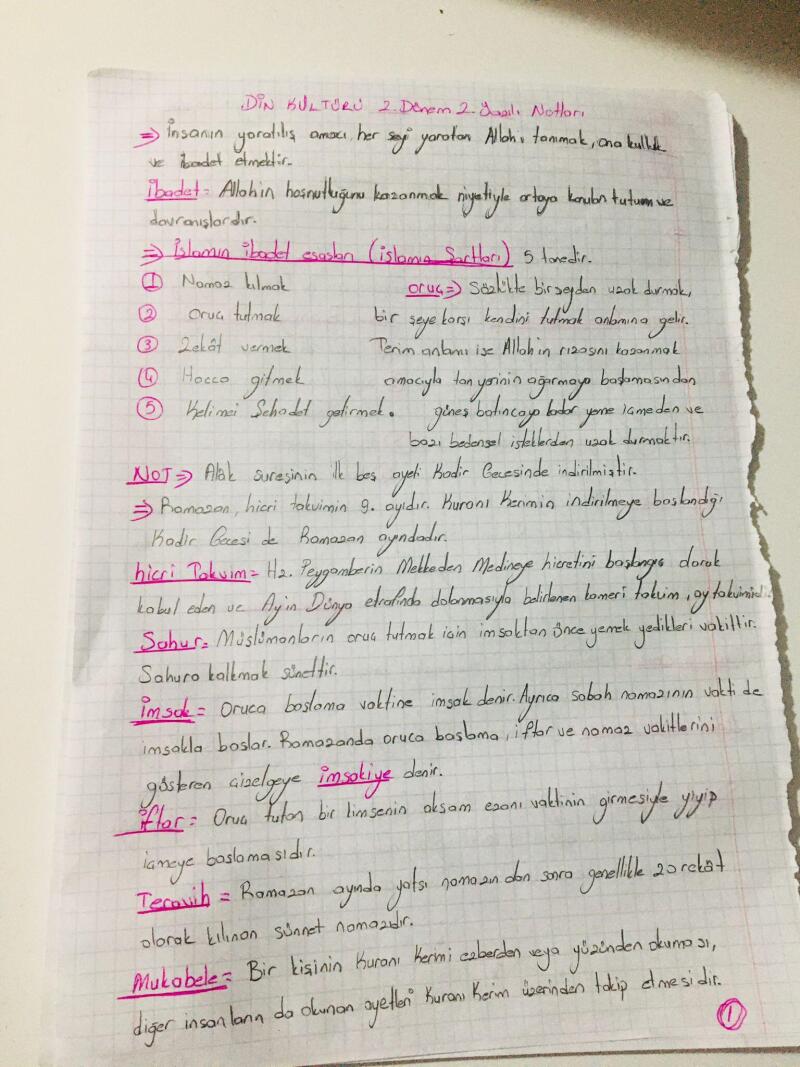 DİN KÜLTÜRÜ 2. Dönem 2. Yazılı Notları
⇒ İnsanın yaratılış amacı, her şeyi yaratan Allah'ı tanımak, ona kulluk
ve ibadet etmektir.
İbadet = Allah'ın hoşnutluğunu kazanmak niyetiyle ortaya konulan tutum ve
davranışlardır.
⇒ İslamın ibadet esasları (islamın Şartları) 5 tanedir.
① Namaz kılmak
② Oruç tutmak
③ Zekât vermek
④ Hacca gitmek
⑤ Kelimei Şehadet getirmek.
oruç ⇒ Sözlükte bir şeyden uzak durmak,
bir şeye karşı kendini tutmak anlamına gelir.
Terim anlamı ise Allah'ın rızasını kazanmak
amacıyla tan yerinin ağarmaya başlamasından
güneş batıncaya kadar yeme içmeden ve
bazı bedensel isteklerden uzak durmaktır.
NOT ⇒ Alak suresinin ilk beş ayeti Kadir Gecesinde indirilmiştir.
⇒ Ramazan, hicri takvimin 9. ayıdır. Kuranı Kerimin indirilmeye başlandığı
Kadir Gecesi de Ramazan ayındadır.
hicri Takvim = Hz. Peygamberin Mekkeden Medineye hicretini başlangıç olarak
kabul eden ve Ay'ın Dünya etrafında dolanmasıyla belirlenen kameri takvim, ay takvimidir.
Sahur = Müslümanların oruç tutmak için imsaktan önce yemek yedikleri vakittir.
Sahura kalkmak sünettir.
İmsak = Oruca başlama vaktine imsak denir. Ayrıca sabah namazının vakti de
imsakla başlar. Ramazanda oruca başlama, iftar ve namaz vakitlerini
gösteren çizelgeye imsakiye denir.
İftar = Oruç tutan bir kimsenin akşam ezanı vaktinin girmesiyle yiyip
içmeye başlamasıdır.
Teravih = Ramazan ayında yatsı namazından sonra genellikle 20 rekât
olarak kılınan sünnet namazıdır.
Mukabele = Bir kişinin Kuranı Kerimi ezberden veya yüzünden okuması,
diğer insanların da okunan ayetleri Kuranı Kerim üzerinden takip etmesidir.
①